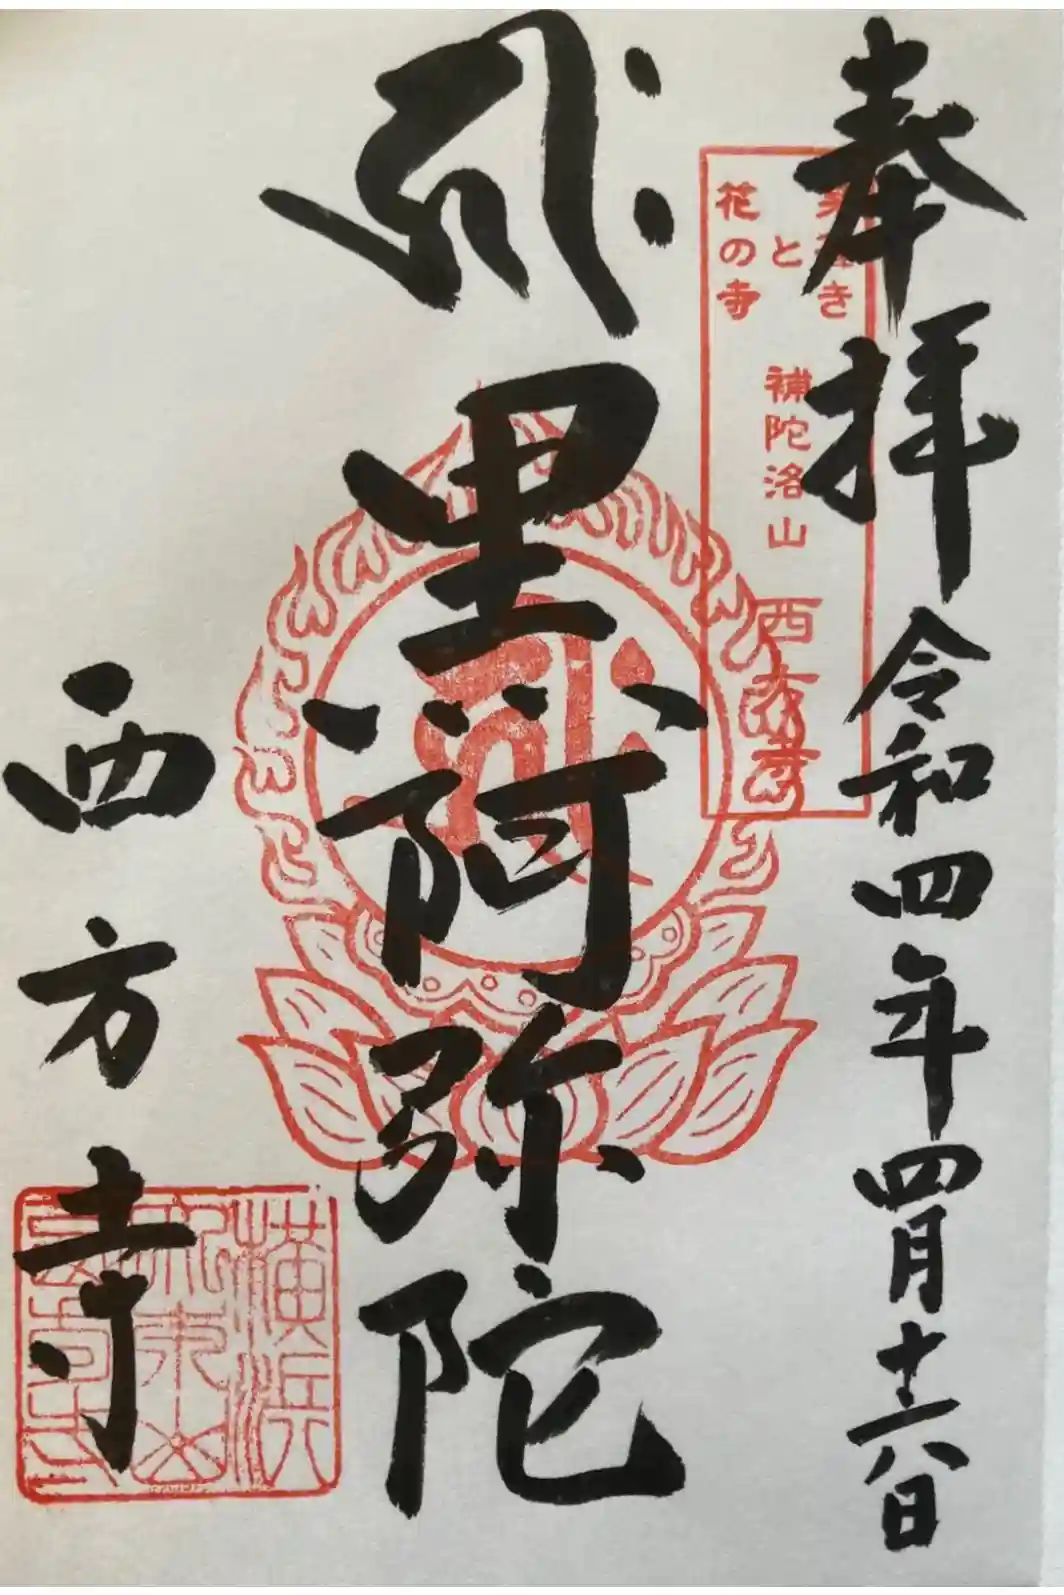 奉拝 令和四年四月十六日
茅葺き
と
花の寺
補陀洛山 西方寺
𑖮𑖿𑖨𑖱𑖾 黒阿弥陀
𑖮𑖿𑖨𑖱𑖾
西方寺
横浜